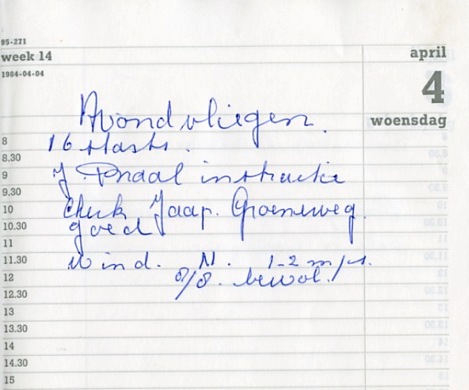 95-271
week 14
april
1984-04-04
4
woensdag
Avondvliegen.
8
16 starts.
8.30
9
J. Praal instructie
9.30
10
Check Jaap. Groeneweg.
10.30
goed
11
11.30
Wind. N. 1-2 m/s.
12
8/8. bewol.
12.30
13
13.30
14
14.30
15